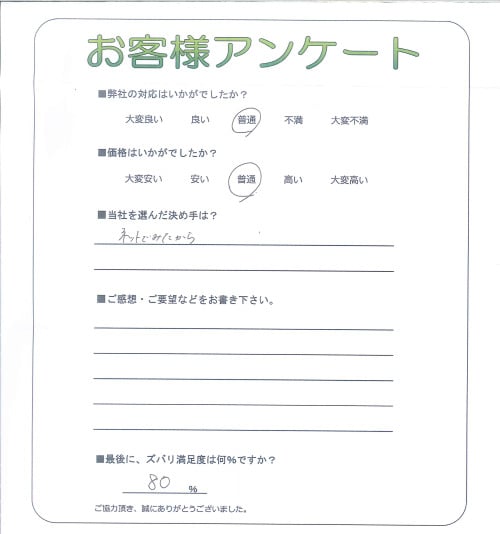 お客様アンケート
■弊社の対応はいかがでしたか？
大変良い 良い 普通 不満 大変不満
■価格はいかがでしたか？
大変安い 安い 普通 高い 大変高い
■当社を選んだ決め手は？
ネットでみたから
■ご感想・ご要望などをお書き下さい。
■最後に、ズバリ満足度は何％ですか？
80 %
ご協力頂き、誠にありがとうございました。